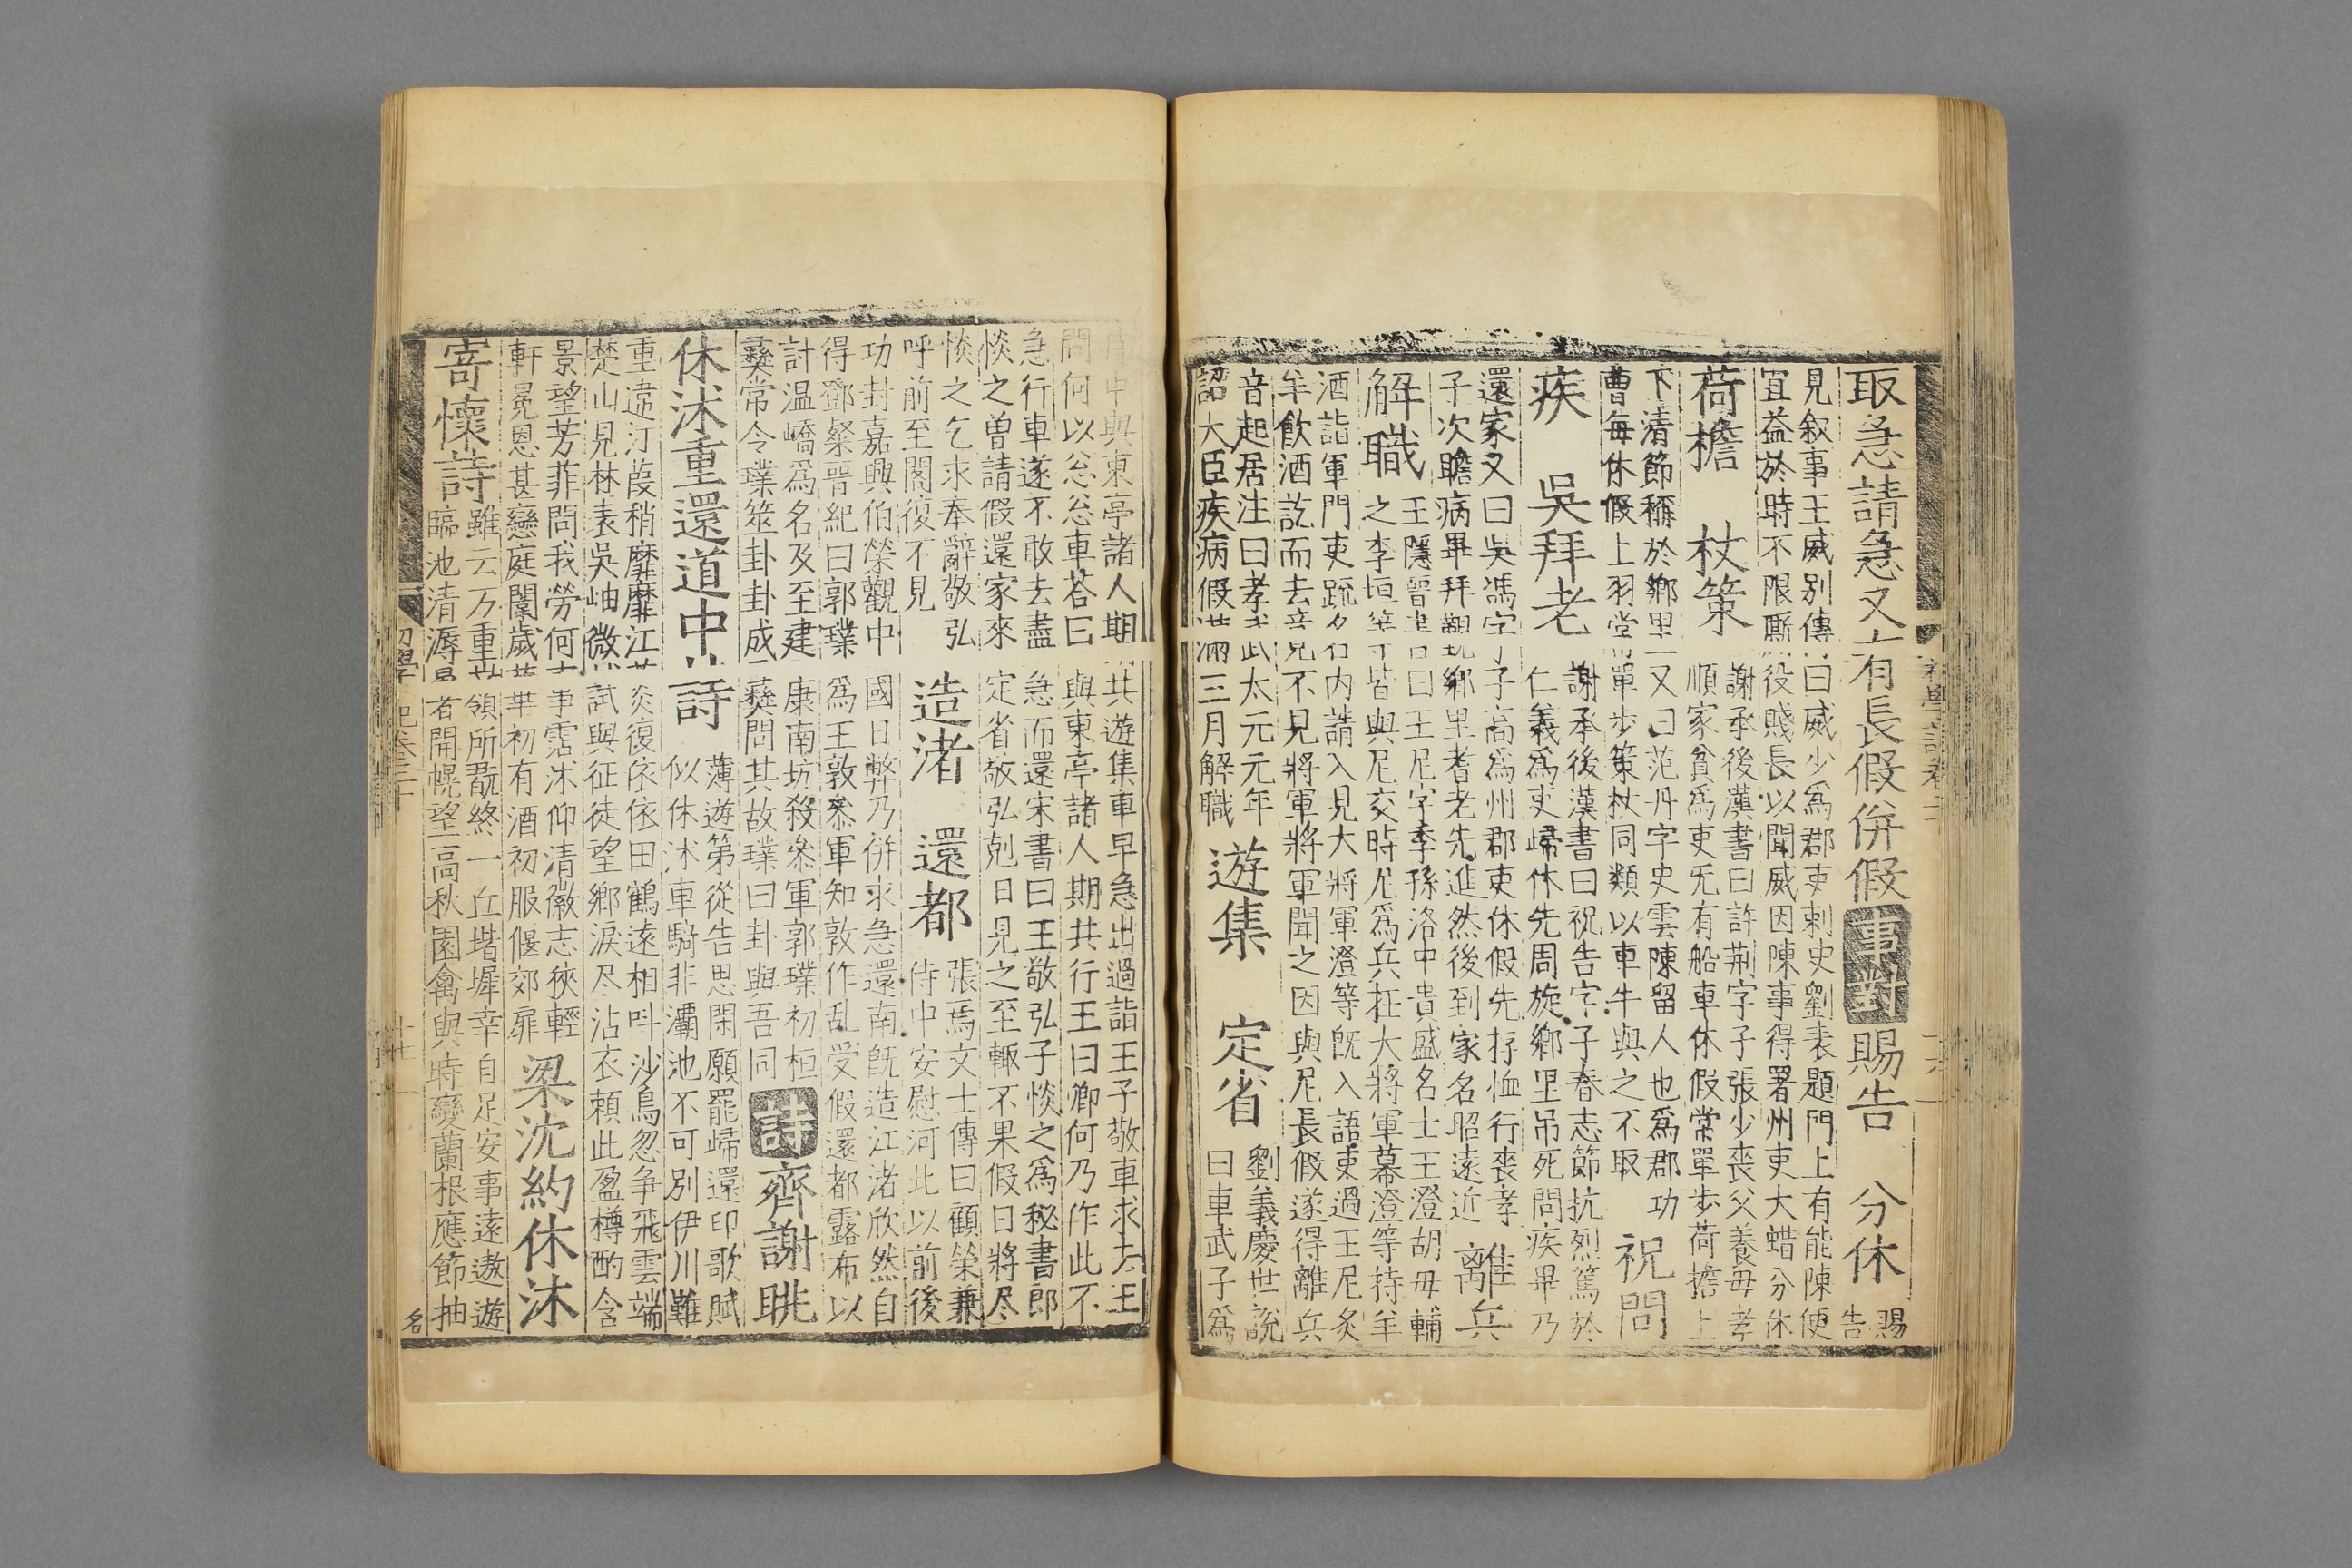 取急請急又有長假併假事對賜告 分休賜告
見敘事王威別傳曰威少爲郡吏刺史劉表題門上有能陳便
宜益於時不限厮役賤長以聞威因陳事得署州吏大蜡分休
荷檐 杖策謝承後漢書曰許荆字子張少喪父養母孝
順家貧爲吏无有船車休假常單步荷擔上
下清節稱於鄉里又曰范丹字史雲陳留人也爲郡功
曹每休假上羽常單步策杖同類以車牛與之不取
祝問
疾 吳拜老謝承後漢書曰祝告字子春志節抗烈篤於
仁義爲吏歸休先周旋鄉里吊死問疾畢乃
還家又曰吳馮字子高爲州郡吏休假先存恤行喪孝
子次瞻病畢拜覲鄉里耆老先進然後到家名昭遠近
離兵
解職王隱晉書曰王尼字季孫洛中貴盛名士王澄胡毋輔
之李垣等皆與尼交時尼爲兵在大將軍幕澄等持羊
酒詣軍門吏疏名內請入見大將軍澄等旣入語吏過王尼炙
羊飲酒訖而去竟不見將軍將軍聞之因與尼長假遂得離兵
音起居注曰孝武太元元年
詔大臣疾病假滿三月解職
遊集 定省劉義慶世說
曰車武子爲
侍中與東亭諸人期共遊集車早急出過詣王子敬車求去王
問何以忩忩車荅曰與東亭諸人期共行王曰卿何乃作此不
急行車遂不敢去盡急而還宋書曰王敬弘子惔之爲秘書郎
惔之曾請假還家來定省敬弘剋日見之至輒不果假日將尽
惔之乞求奉辭敬弘
呼前至閤復不見
造渚 還都張焉文士傳曰顧榮兼
侍中安慰河北以前後
功封嘉興伯榮觀中國日弊乃併求急還南旣造江渚欣然自
得鄧粲晉紀曰郭璞爲王敦叅軍知敦作乱受假還都露布以
計温嶠爲名及至建康南坊殺叅軍郭璞初桓
彝常令璞筮卦卦成彝問其故璞曰卦與吾同
詩齊謝眺
休沐重還道中詩薄遊第從告思閑願罷歸還卭歌賦
似休沐車騎非灞池不可別伊川難
重遠汀葭稍靡靡江菼復依依田鶴遠相呌沙鳥忽争飛雲端
楚山見林表吳岫微試與征徒望鄉淚尽沾衣頼此盈樽酌含
景望芳菲問我勞何事霑沐仰清徽志狹輕
軒冕恩甚戀庭闈歲華初有酒初服偃郊扉
梁沈約休沐
寄懷詩雖云万重嶺所翫終一丘堦墀幸自足安事遠遨遊
臨池清溽暑開幌望高秋園禽與時變蘭根應節抽
初學記卷二十
十七
名